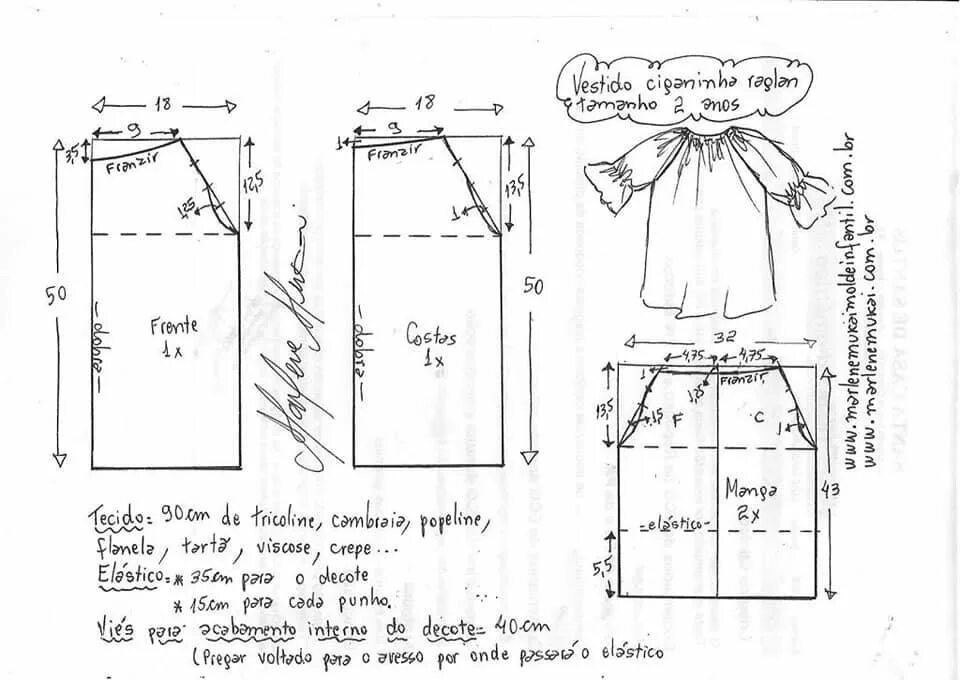 Vestido ciganinha raglan
tamanho 2 anos
18
9
3,5
Franzir
12,5
1,25
50
dobra
Frente
1x
18
9
1
Franzir
13,5
1
50
dobra
Costas
1x
32
4,75
4,75
1
1,25
Franzir
13,5
1,5
F
C
1
Manga
2x
43
elástico
5,5
www.marlenemukaimoldeinfantil.com.br
www.marlenemukai.com.br
Tecido= 90cm de tricoline, cambraia, popeline,
flanela, tartã, viscose, crepe...
Elástico=* 35cm para o decote
* 15cm para cada punho.
Viés para acabamento interno do decote= 40cm
(Pregar voltado para o avesso por onde passará o elástico